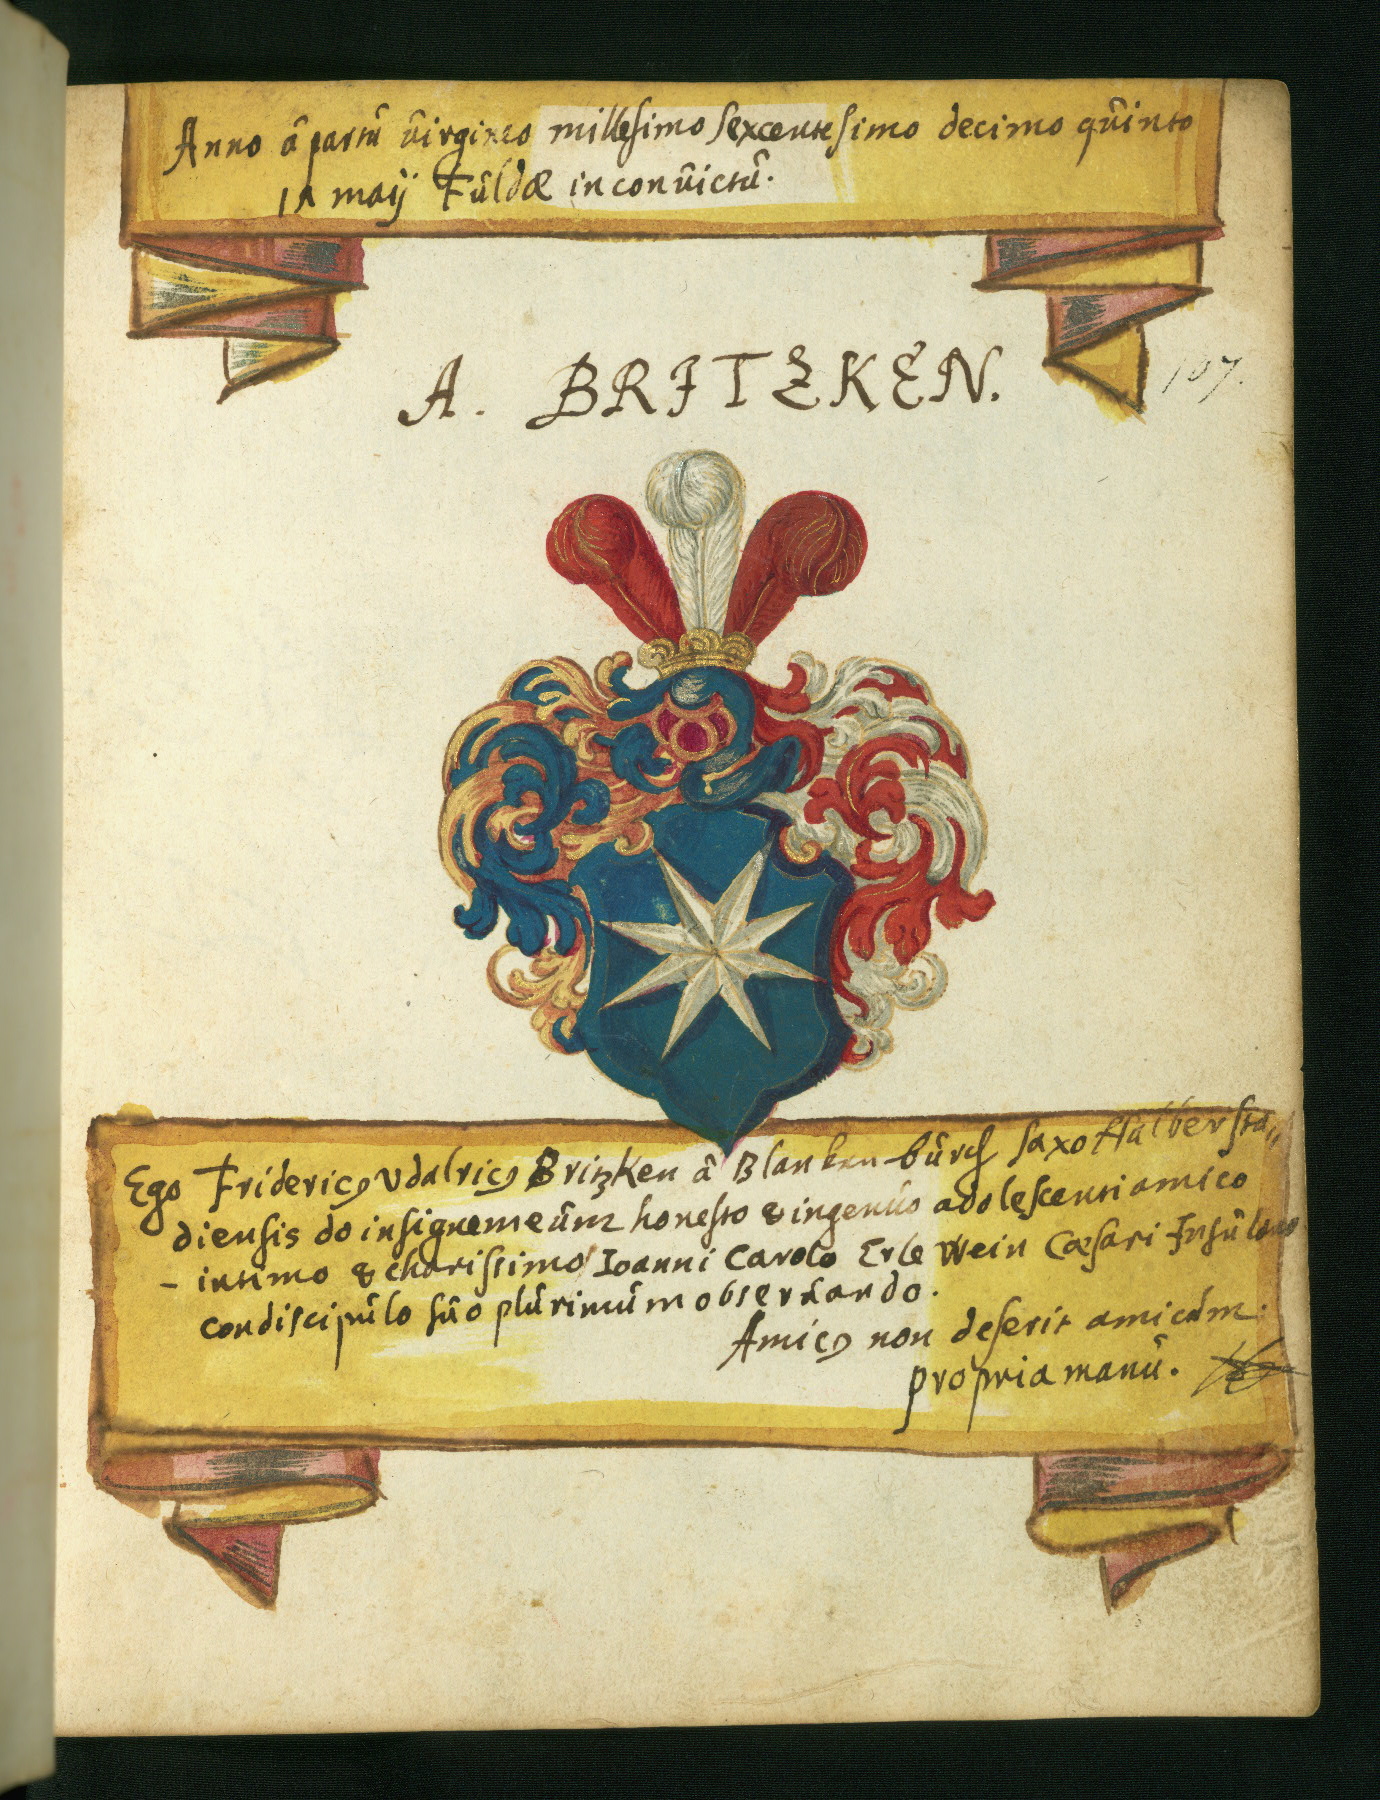 Anno â partû virgineo millesimo sexcentesimo decimo qûinto
1Λ maÿ Fûldæ in convictû.
A. BRITZKEN.
107.
Ego Fridericꝯ Vdalricꝯ Britzken â Blankenbûrch Saxo Halbersta„
diensis do insigne meûm honesto & ingenûo adolescenti amico
– intimo & charissimo Ioanni Carolo Erlewein Cæsari Insûlano
condiscipûlo sûo plûrimûm observando.
Amicꝯ non deserit amicûm.
propria manû.